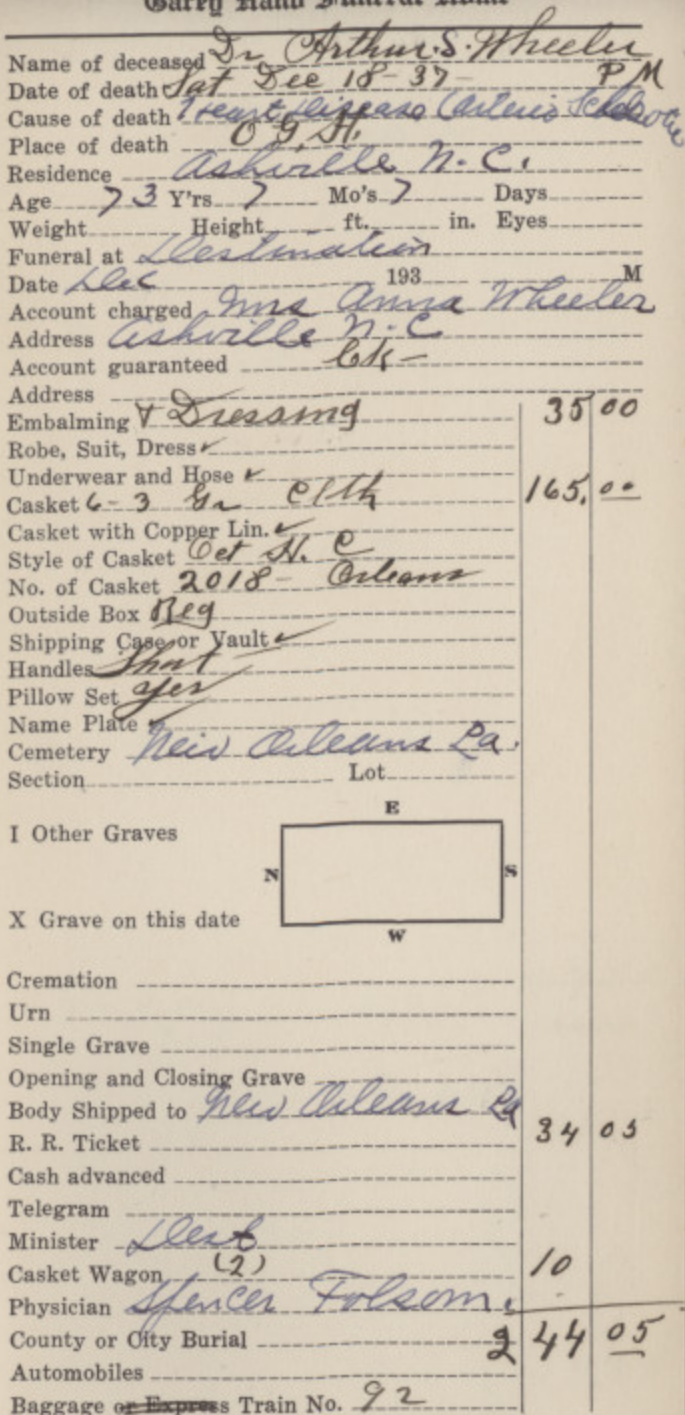 Garry Hand Funeral Home
Name of deceased Dr Arthur. S. Wheeler
Date of death Sat Dec 18-37- P M
Cause of death Heart Disease Arterio
Place of death O G H.
Residence Ashville N. C.
Age 73 Y'rs 7 Mo's 7 Days
Weight Height ft. in. Eyes
Funeral at Destination
Date Dec 193 M
Account charged Mrs Anna Wheeler
Address Ashville N. C
Account guaranteed Ck-
Address
Embalming & Dressing 35 00
Robe, Suit, Dress ✓
Underwear and Hose ✓
Casket 6-3 Gr Clth 165. 00
Casket with Copper Lin. ✓
Style of Casket Oct H. C
No. of Casket 2018- Orleans
Outside Box Reg
Shipping Case or Vault ✓
Handles Short
Pillow Set yes
Name Plate ✓
Cemetery New Orleans La.
Section Lot
E
I Other Graves
N S
X Grave on this date
W
Cremation
Urn
Single Grave
Opening and Closing Grave
Body Shipped to New Orleans La
R. R. Ticket 34 05
Cash advanced
Telegram
Minister Dest
Casket Wagon (2) 10
Physician Spencer Folsom.
County or City Burial 244 05
Automobiles
Baggage or Express Train No. 92